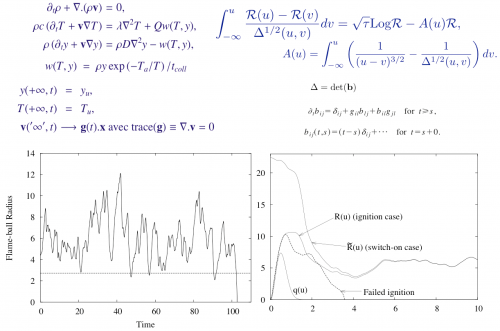 ∂ₜρ + ∇.(ρv) = 0,
ρc (∂ₜT + v∇T) = λ∇²T + Qw(T, y),
ρ (∂ₜy + v∇y) = ρD∇²y − w(T, y),
w(T, y) = ρy exp (−Tₐ/T) / t_coll
y(+∞, t) = yᵤ,
T(+∞, t) = Tᵤ,
v("∞", t) ⟶ g(t).x avec trace(g) ≡ ∇.v = 0
∫_{-∞}^{u} (R(u) − R(v))/(Δ^{1/2}(u, v)) dv = √τ LogR − A(u)R,
A(u) = ∫_{-∞}^{u} ( 1/(u − v)^{3/2} − 1/(Δ^{1/2}(u, v)) ) dv.
Δ = det(b)
∂ₜb_{ij} = δ_{ij} + g_{il}b_{lj} + b_{il}g_{jl} for t ⩾ s,
b_{ij}(t,s) = (t−s) δ_{ij} + ⋯ for t = s+0.
Flame-ball Radius
14
12
10
8
6
4
2
0
0 20 40 60 80 100
Time
20
15
10
5
0
0 2 4 6 8 10
R(u) (ignition case)
R̃(u) (switch-on case)
q(u)
Failed ignition